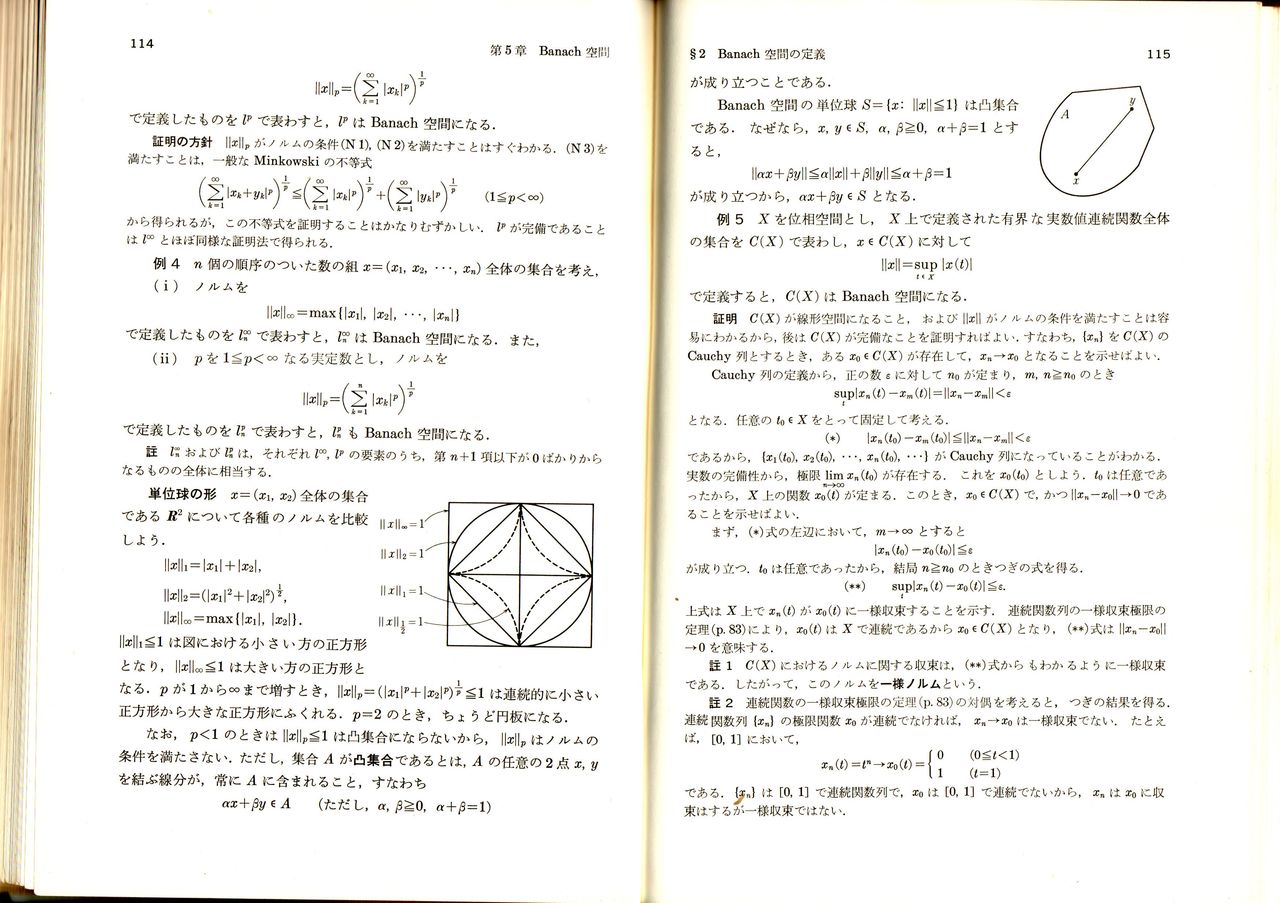 114
第5章　Banach 空間
||x||_p=(∑_{k=1}^{∞}|x_k|^p)^{1/p}
で定義したものを l^p で表わすと，l^p は Banach 空間になる．
証明の方針　||x||_p がノルムの条件(N 1), (N 2)を満たすことはすぐわかる．(N 3)を
満たすことは，一般な Minkowski の不等式
(∑_{k=1}^{∞}|x_k+y_k|^p)^{1/p}≦(∑_{k=1}^{∞}|x_k|^p)^{1/p}+(∑_{k=1}^{∞}|y_k|^p)^{1/p}　(1≦p<∞)
から得られるが，この不等式を証明することはかなりむずかしい．l^p が完備であること
は l^∞ とほぼ同様な証明法で得られる．
例 4　n 個の順序のついた数の組 x=(x_1, x_2, ···, x_n) 全体の集合を考え，
(ⅰ)　ノルムを
||x||_∞=max{|x_1|, |x_2|, ···, |x_n|}
で定義したものを l_n^∞ で表わすと，l_n^∞ は Banach 空間になる．また，
(ii)　p を 1≦p<∞ なる実定数とし，ノルムを
||x||_p=(∑_{k=1}^{n}|x_k|^p)^{1/p}
で定義したものを l_n^p で表わすと，l_n^p も Banach 空間になる．
註　l_n^∞ および l_n^p は，それぞれ l^∞, l^p の要素のうち，第 n+1 項以下が 0 ばかりから
なるものの全体に相当する．
単位球の形　x=(x_1, x_2) 全体の集合
である R^2 について各種のノルムを比較
しよう．
||x||_1=|x_1|+|x_2|,
||x||_2=(|x_1|^2+|x_2|^2)^{1/2},
||x||_∞=max{|x_1|, |x_2|}.
||x||_1≦1 は図における小さい方の正方形
となり，||x||_∞≦1 は大きい方の正方形と
||x||_∞=1
||x||_2=1
||x||_1=1
||x||_{1/2}=1
なる．p が 1 から∞まで増すとき，||x||_p=(|x_1|^p+|x_2|^p)^{1/p}≦1 は連続的に小さい
正方形から大きな正方形にふくれる．p=2 のとき，ちょうど円板になる．
なお，p<1 のときは ||x||_p≦1 は凸集合にならないから，||x||_p はノルムの
条件を満たさない．ただし，集合 A が凸集合であるとは，A の任意の 2 点 x, y
を結ぶ線分が，常に A に含まれること，すなわち
αx+βy∈A　(ただし，α, β≧0, α+β=1)
§2　Banach 空間の定義
115
が成り立つことである．
Banach 空間の単位球 S={x: ||x||≦1} は凸集合
である．なぜなら，x, y∈S, α, β≧0, α+β=1 とす
ると，
||αx+βy||≦α||x||+β||y||≦α+β=1
が成り立つから，αx+βy∈S となる．
A
y
x
例 5　X を位相空間とし，X 上で定義された有界な実数値連続関数全体
の集合を C(X) で表わし，x∈C(X) に対して
||x||=sup_{t∈X}|x(t)|
で定義すると，C(X) は Banach 空間になる．
証明　C(X) が線形空間になること，および ||x|| がノルムの条件を満たすことは容
易にわかるから，後は C(X) が完備なことを証明すればよい．すなわち，{x_n} を C(X) の
Cauchy 列とするとき，ある x_0∈C(X) が存在して，x_n→x_0 となることを示せばよい．
Cauchy 列の定義から，正の数 ε に対して n_0 が定まり，m, n≧n_0 のとき
sup_t|x_n(t)−x_m(t)|=||x_n−x_m||<ε
となる．任意の t_0∈X をとって固定して考える．
(*)　|x_n(t_0)−x_m(t_0)|≦||x_n−x_m||<ε
であるから，{x_1(t_0), x_2(t_0), ···, x_n(t_0), ···} が Cauchy 列になっていることがわかる．
実数の完備性から，極限 lim_{n→∞} x_n(t_0) が存在する．これを x_0(t_0) としよう．t_0 は任意であ
ったから，X 上の関数 x_0(t) が定まる．このとき，x_0∈C(X) で，かつ ||x_n−x_0||→0 であ
ることを示せばよい．
まず，(*)式の左辺において，m→∞ とすると
|x_n(t_0)−x_0(t_0)|≦ε
が成り立つ．t_0 は任意であったから，結局 n≧n_0 のときつぎの式を得る．
(**)　sup_t|x_n(t)−x_0(t)|≦ε.
上式は X 上で x_n(t) が x_0(t) に一様収束することを示す．連続関数列の一様収束極限の
定理(p. 83)により，x_0(t) は X で連続であるから x_0∈C(X) となり，(**)式は ||x_n−x_0||
→0 を意味する．
註 1　C(X) におけるノルムに関する収束は，(**)式からもわかるように一様収束
である．したがって，このノルムを一様ノルムという．
註 2　連続関数の一様収束極限の定理(p. 83)の対偶を考えると，つぎの結果を得る．
連続関数列 {x_n} の極限関数 x_0 が連続でなければ，x_n→x_0 は一様収束でない．たとえ
ば，[0, 1] において，
x_n(t)=t^n→x_0(t)={0　(0≦t<1)
1　(t=1)
である．{x_n} は [0, 1] で連続関数列で，x_0 は [0, 1] で連続でないから，x_n は x_0 に収
束はするが一様収束ではない．